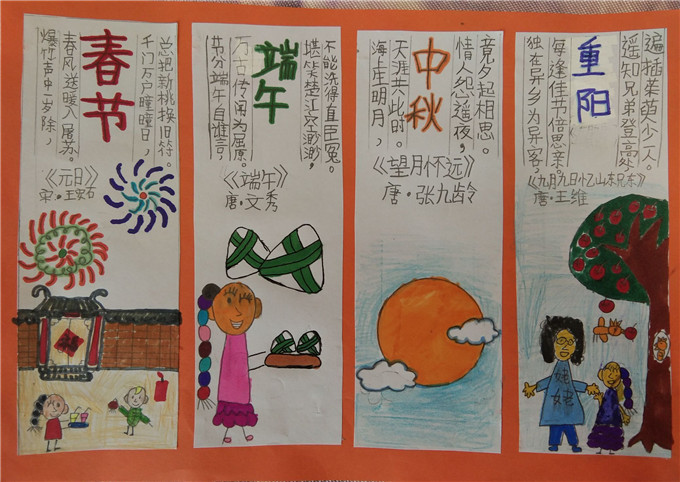 春节
爆竹声中一岁除，
春风送暖入屠苏。
千门万户曈曈日，
总把新桃换旧符。
《元日》
宋·王安石
端午
节分端午自谁言，
万古传闻为屈原。
堪笑楚江空渺渺，
不能洗得直臣冤。
《端午》
唐·文秀
中秋
海上生明月，
天涯共此时。
情人怨遥夜，
竟夕起相思。
《望月怀远》
唐·张九龄
重阳
独在异乡为异客，
每逢佳节倍思亲。
遥知兄弟登高处，
遍插茱萸少一人。
《九月九日忆山东兄弟》
唐·王维
姥姥